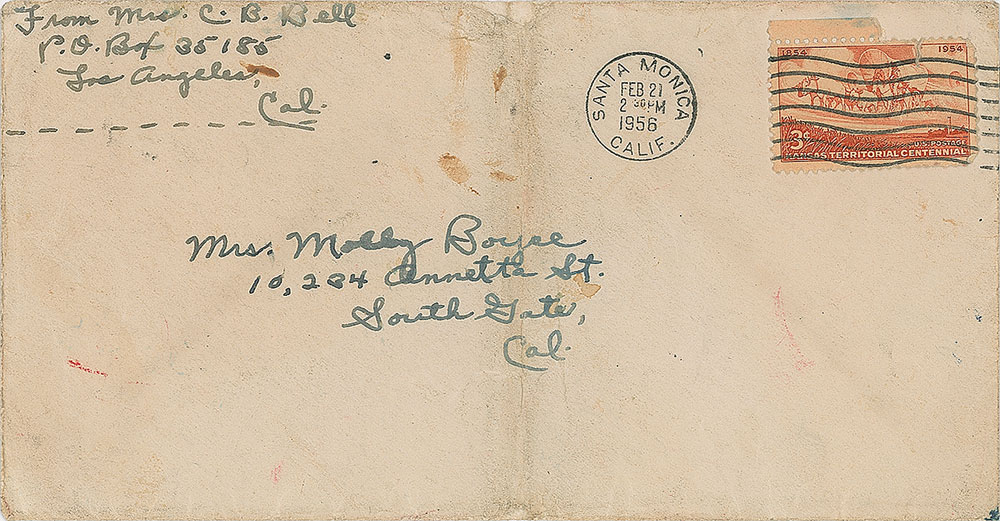 From Mrs. C. B. Bell
P.O. Box 35185
Los Angeles,
Cal.
SANTA MONICA
FEB 21
2 30 PM
1956
CALIF.
1854 1954
3¢ U.S. POSTAGE
KANSAS TERRITORIAL CENTENNIAL
Mrs. Molly Boyse
10,284 Annetta St.
South Gate,
Cal.